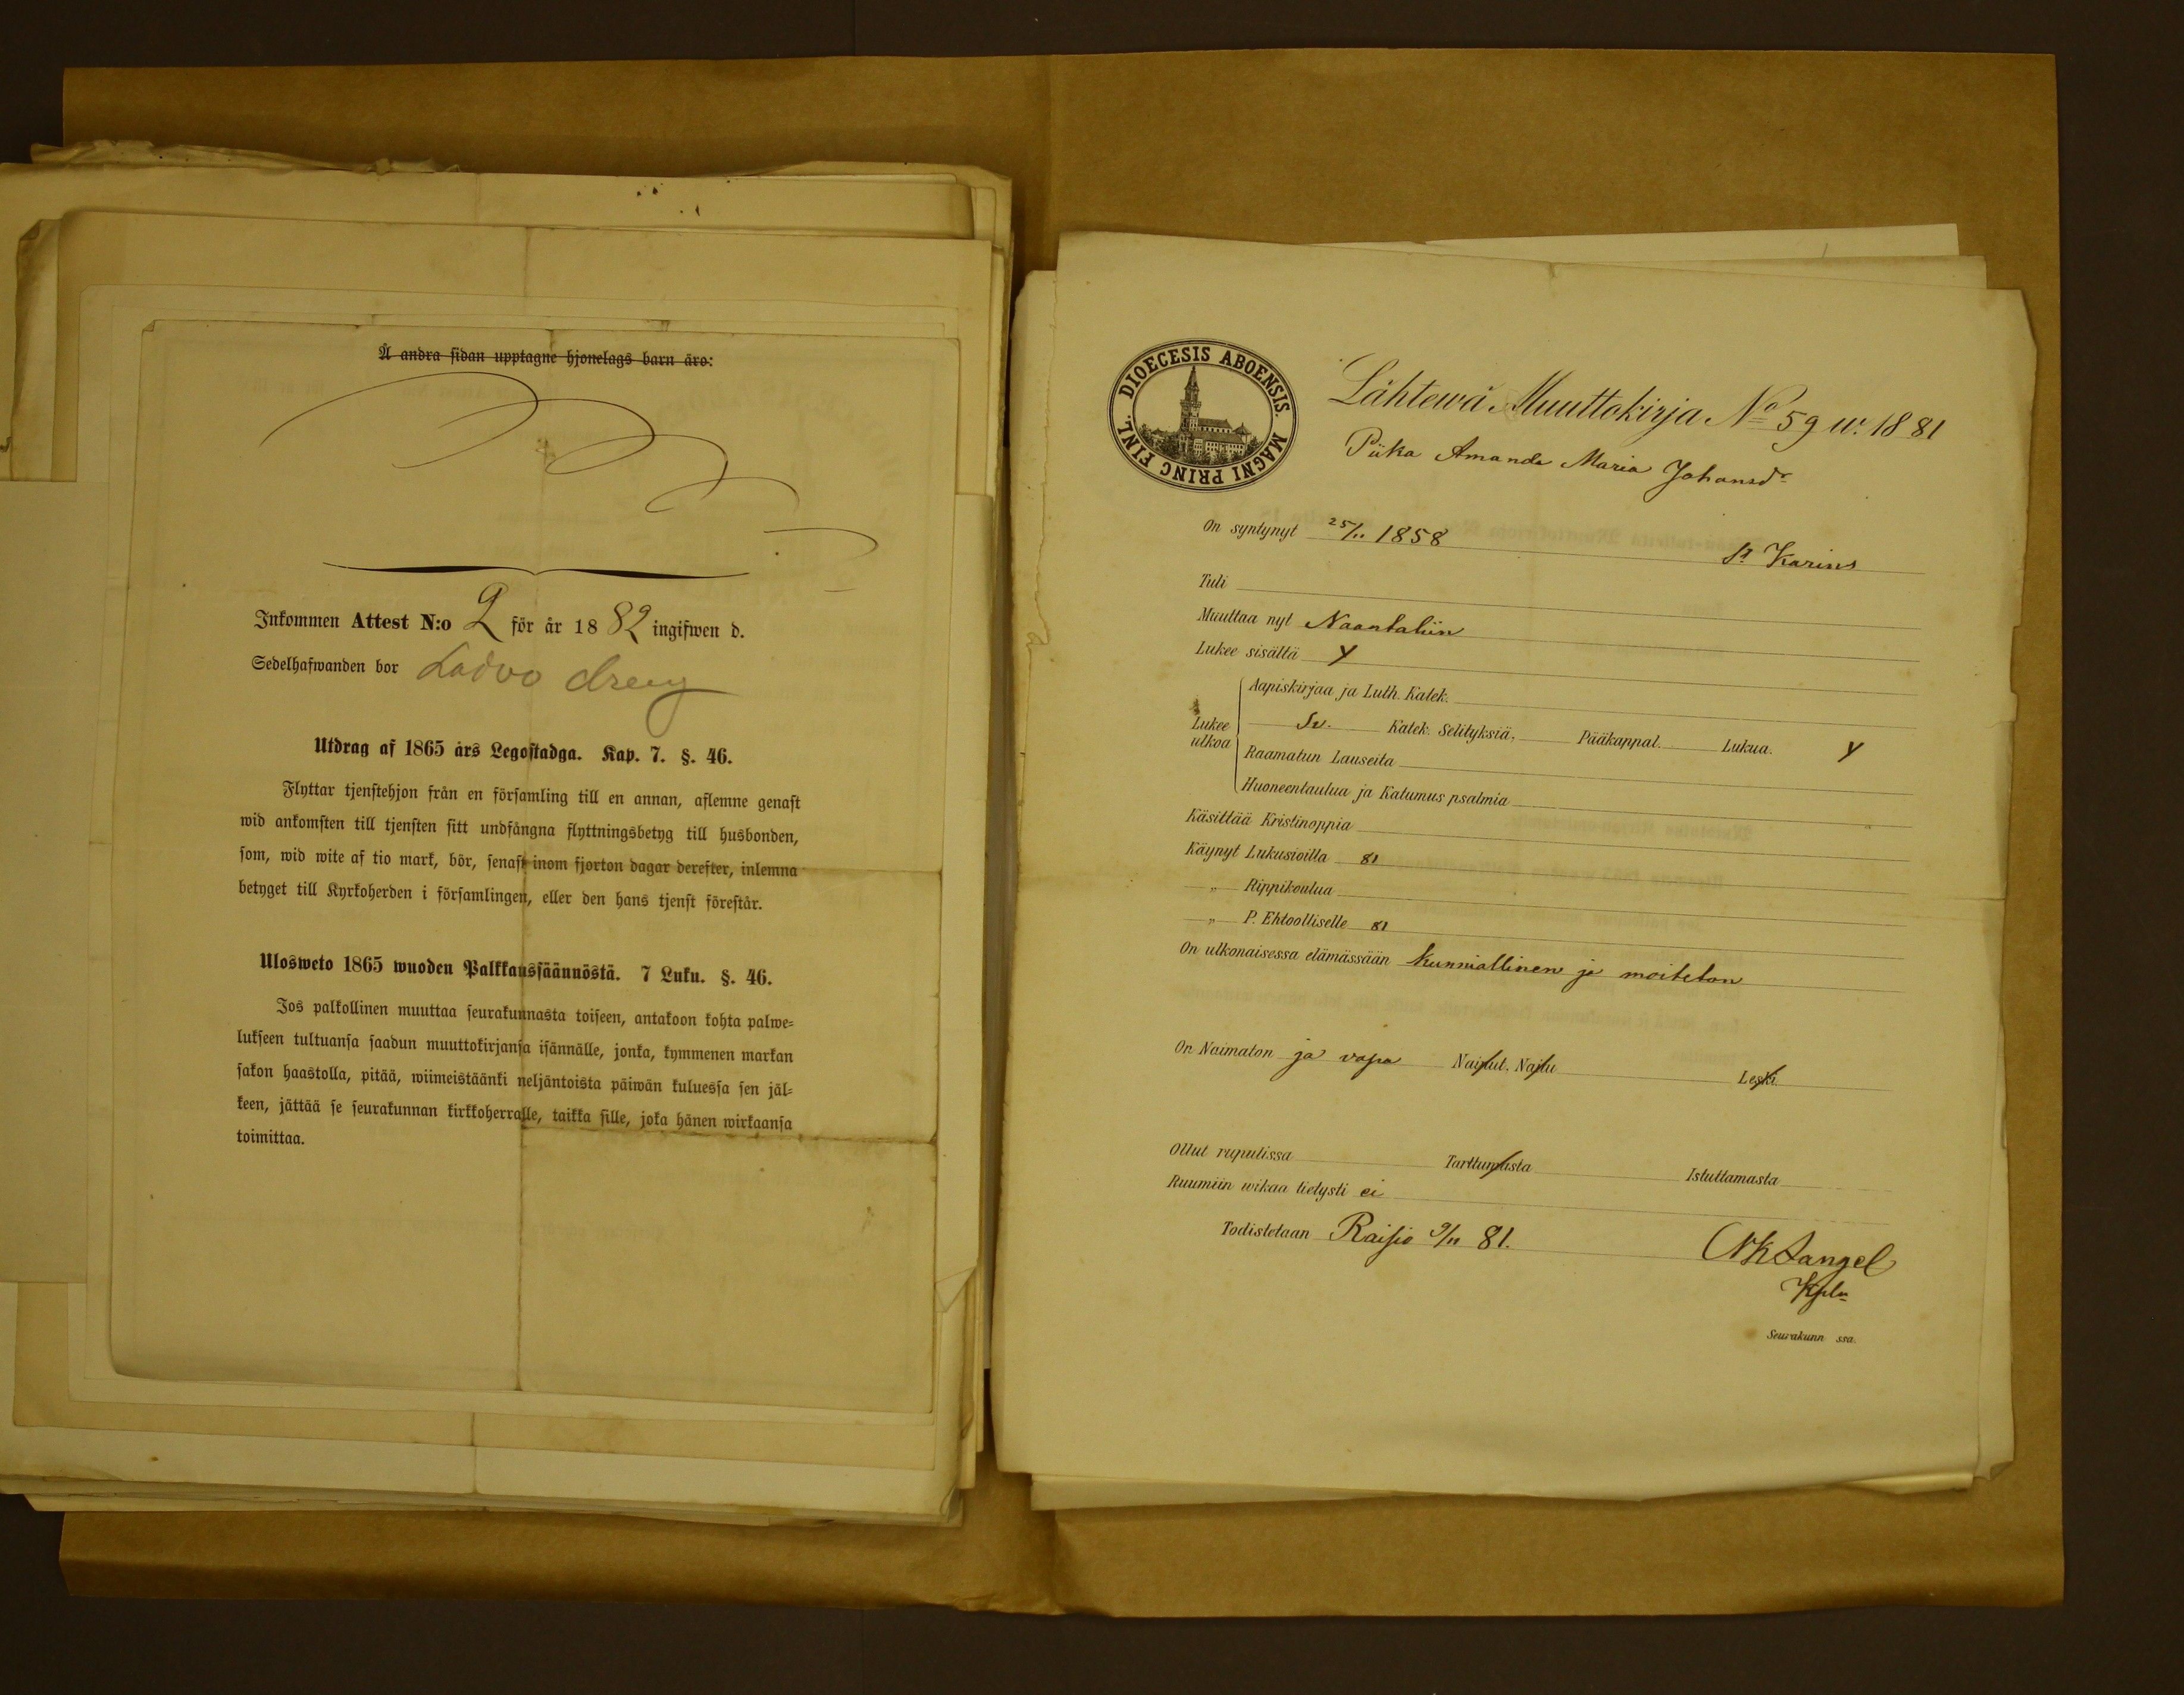 Å andra sidan upptagne hjonelags barn äro:
Inkommen Attest N:o 2 för år 1882 ingifwen d.
Sedelhafwanden bor Ladvo dreng
Utdrag af 1865 års Legostadga. Kap. 7. §. 46.
Flyttar tjenstehjon från en församling till en annan, aflemne genast
wid ankomsten till tjensten sitt undfångna flyttningsbetyg till husbonden,
som, wid wite af tio mark, bör, senast inom fjorton dagar derefter, inlemna
betyget till Kyrkoherden i församlingen, eller den hans tjenst förestår.
Ulosweto 1865 wuoden Palkkaussäännöstä. 7 Luku. §. 46.
Jos palkollinen muuttaa seurakunnasta toiseen, antakoon kohta palwe-
lukseen tultuansa saadun muuttokirjansa isännälle, jonka, kymmenen markan
sakon haastolla, pitää, wiimeistäänki neljäntoista päiwän kuluessa sen jäl-
keen, jättää se seurakunnan kirkkoherralle, taikka sille, joka hänen wirkaansa
toimittaa.
DIOECESIS ABOENSIS. MAGNI PRINC FINL.
Lähtewä Muuttokirja No 59 w. 1881
Piika Amanda Maria Johansdr
On syntynyt 25/11 1858 St Karins
Tuli
Muuttaa nyt Naantaliin
Lukee sisältä Y
Aapiskirjaa ja Luth. Katek.
Lukee ulkoa Sv. Katek. Selityksiä, Pääkappal. Lukua. Y
Raamatun Lauseita
Huoneentaulua ja Katumus psalmia
Käsittää Kristinoppia "
Käynyt Lukusioilla 81
" Rippikoulua
" P. Ehtoolliselle 81
On ulkonaisessa elämässään kunniallinen ja moiteton
On Naimaton ja vapa Naijlut. Najtu Leski.
Ollut rupulissa Tarttumasta Istuttamasta
Ruumiin wikaa tietysti ei
Todistetaan Raisio 9/11 81. NK Langel
Kpln
Seurakunn ssa.